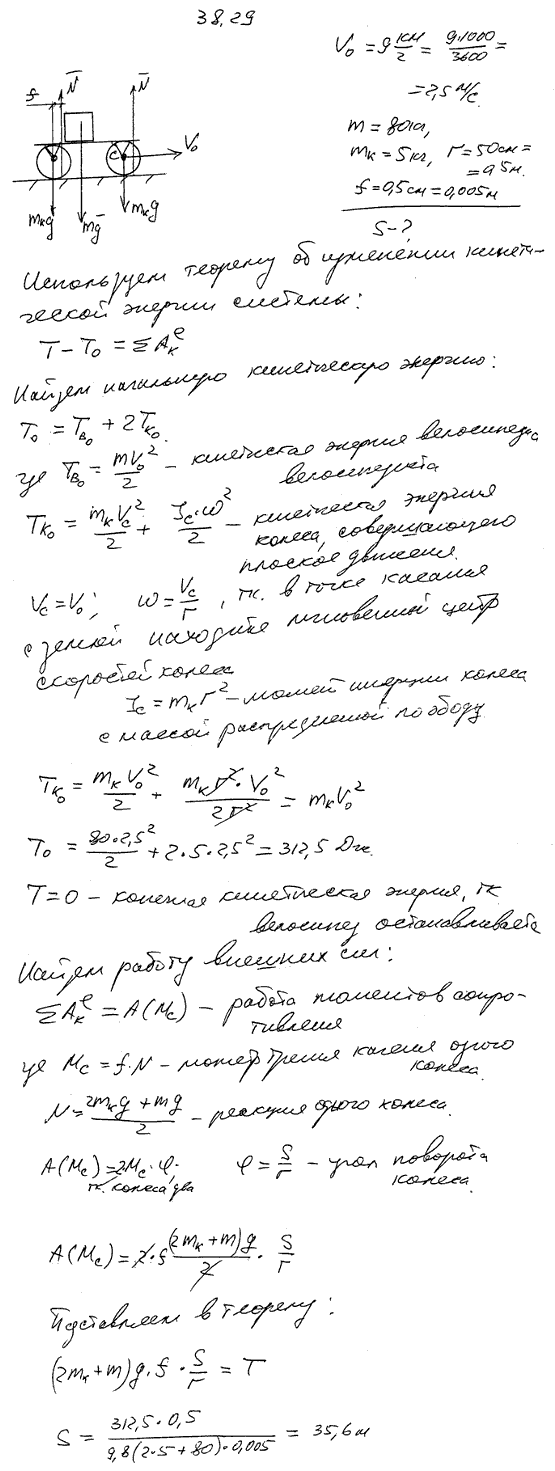 38.29
V₀ = 9 км/г = 9·1000/3600 =
= 2,5 м/с.
m = 80 кг,
mк = 5 кг, r = 50 см =
= 0,5 м.
f = 0,5 см = 0,005 м
S - ?
f N̄ N̄
C V₀
mкg mḡ mкg
Используем теорему об изменении кинети-
ческой энергии системы:
T - T₀ = ΣAкᵉ
Найдем начальную кинетическую энергию:
T₀ = Tв₀ + 2Tк₀.
где Tв₀ = mV₀²/2 - кинетическая энергия велосипеда
велосипедиста
Tк₀ = mкVc²/2 + Jc·ω²/2 - кинетическая энергия
колеса, совершающего
плоское движение.
Vc = V₀; ω = Vc/r, т.к. в точке касания
с землей находится мгновенный центр
скоростей колеса
Jc = mк r² - момент инерции колеса
с массой распределенной по ободу
Tк₀ = mкV₀²/2 + mк r²·V₀²/2r² = mкV₀²
T₀ = 80·2,5²/2 + 2·5·2,5² = 312,5 Дж.
T = 0 - конечная кинетическая энергия, тк
велосипед останавливается
Найдем работу внешних сил:
ΣAкᵉ = A(Mc) - работа моментов сопро-
тивления
где Mc = f·N - момент трения качения одного
колеса.
N = 2mкg + mg/2 - реакция одного колеса.
A(Mc) = 2Mc·φ; φ = S/r - угол поворота
тк. колеса два колеса.
A(Mc) = 2·f (2mк + m)g/2 · S/r
Подставляем в теорему:
(2mк + m)g·f · S/r = T
S = 312,5·0,5/9,8(2·5 + 80)·0,005 = 35,6 м